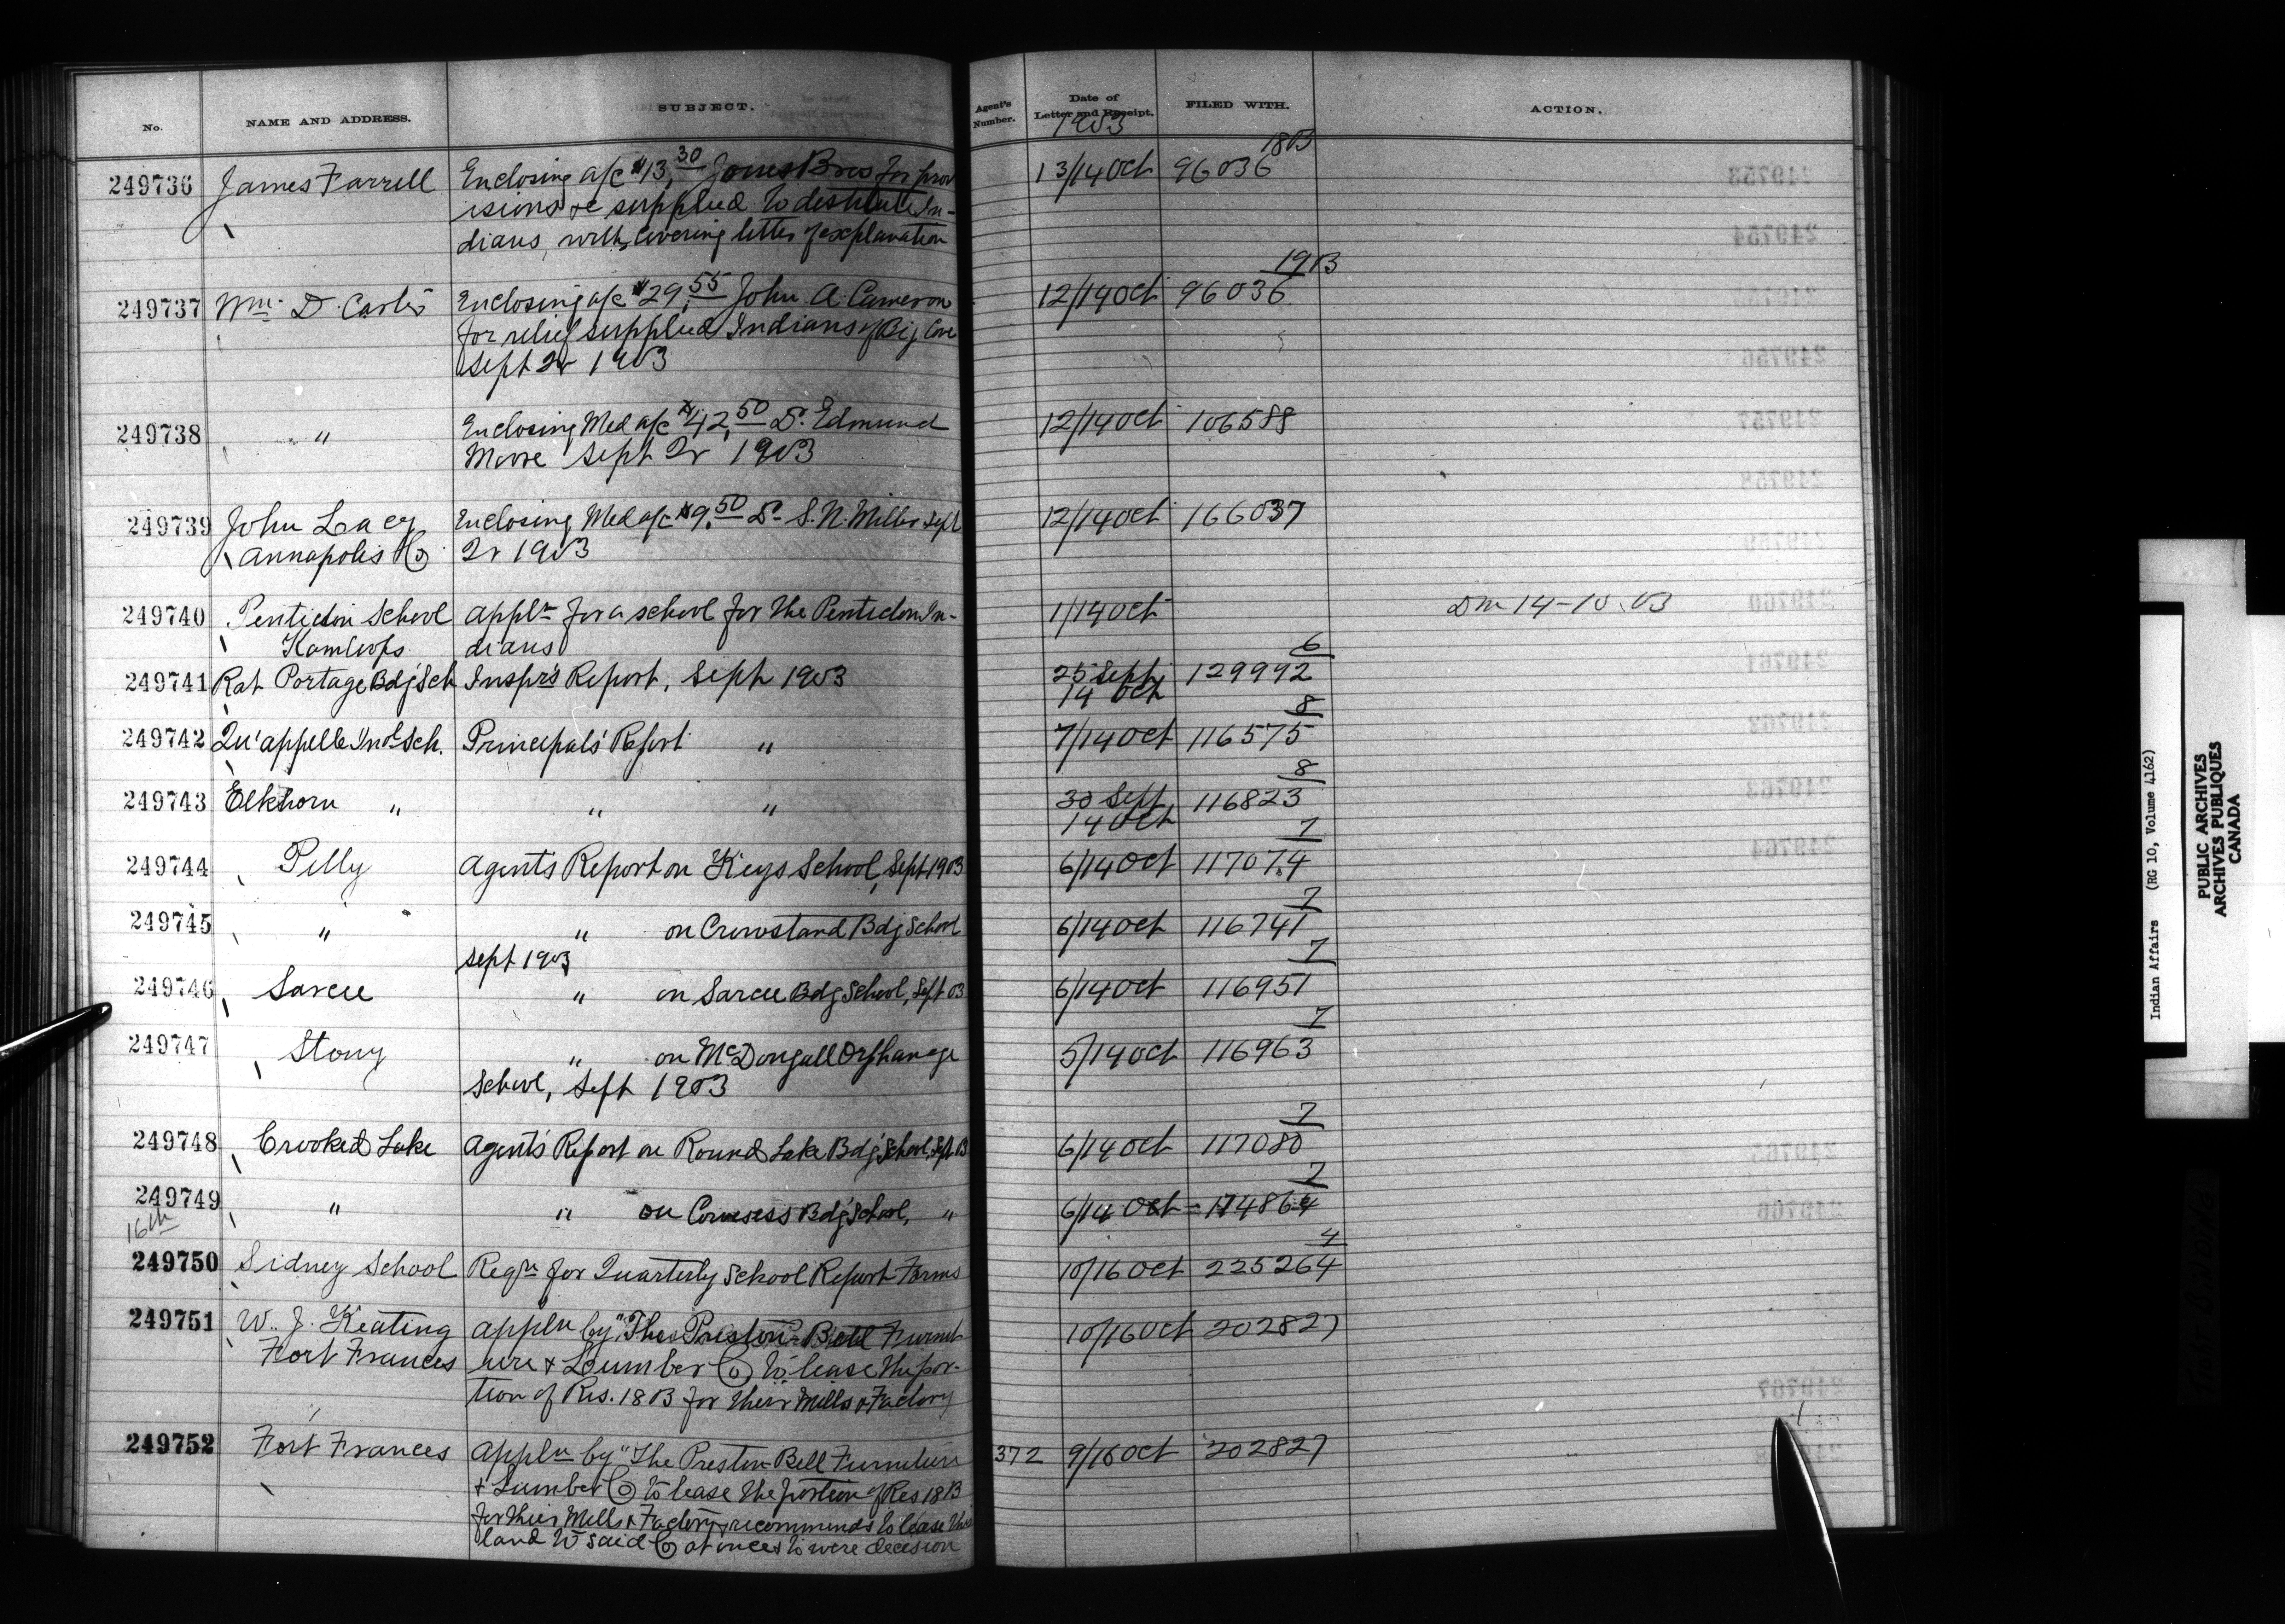 No. NAME AND ADDRESS. SUBJECT. Agent's Number. Date of Letter and Receipt. FILED WITH. ACTION.
1903
249736 James Farrell Enclosing a/c $13.30 Jones Bros for prov 13/14 Oct 96036 18B
isions &c supplied to destitute In-
dians, with covering letter of explanation
249737 Wm. D. Carter Enclosing a/c $29.55 John A. Cameron 12/14 Oct 96036 19B
for relief supplied Indians of Big Cove
Sept 2r 1903
249738 " Enclosing Med a/c $42.50 Dr. Edmund 12/14 Oct 106588
Moore Sept 2r 1903
249739 John Lacy Enclosing Med a/c $9.50 Dr. S. N. Miller Sept 12/14 Oct 166037
Annapolis Co 2r 1903
249740 Penticton School Appln for a school for the Penticton In- 1/14 Oct Dm 14-10.03
Kamloops dians
249741 Rat Portage Bdg Sch Inspr's Report, Sept 1903 25 Sept 129992 6
14 Oct
249742 Qu'appelle Indl Sch. Principal's Report " 7/14 Oct 116575 8
249743 Elkhorn " " " 30 Sept 116823 8
14 Oct
249744 Pelly Agent's Report on Keys School, Sept 1903 6/14 Oct 117074 7
249745 " " on Crowstand Bdg School 6/14 Oct 116741 7
Sept 1903
249746 Sarcee " on Sarcee Bdg School, Sept 03 6/14 Oct 116951 7
249747 Stony " on McDougall Orphanage 5/14 Oct 116963 7
School, Sept 1903
249748 Crooked Lake Agent's Report on Round Lake Bdg School, Sept 03 6/14 Oct 117080 7
249749 " " on Cowesess Bdg School, " 6/14 Oct 174864 7
16th
249750 Sidney School Reqn for Quarterly School Report Forms 10/16 Oct 225264 4
249751 W. J. Keating Appln by "The Preston-Bell Furnit 10/16 Oct 202827
Fort Frances ure & Lumber Co to lease the por-
tion of Res. 18B for their Mills & Factory
249752 Fort Frances Appln by "The Preston-Bell Furniture 372 9/16 Oct 202827
& Lumber Co to lease the portion of Res 18B
for their Mills & Factory & recommends to lease the
land to said Co at once decision
Indian Affairs (RG 10, Volume 4162)
PUBLIC ARCHIVES
ARCHIVES PUBLIQUES
CANADA